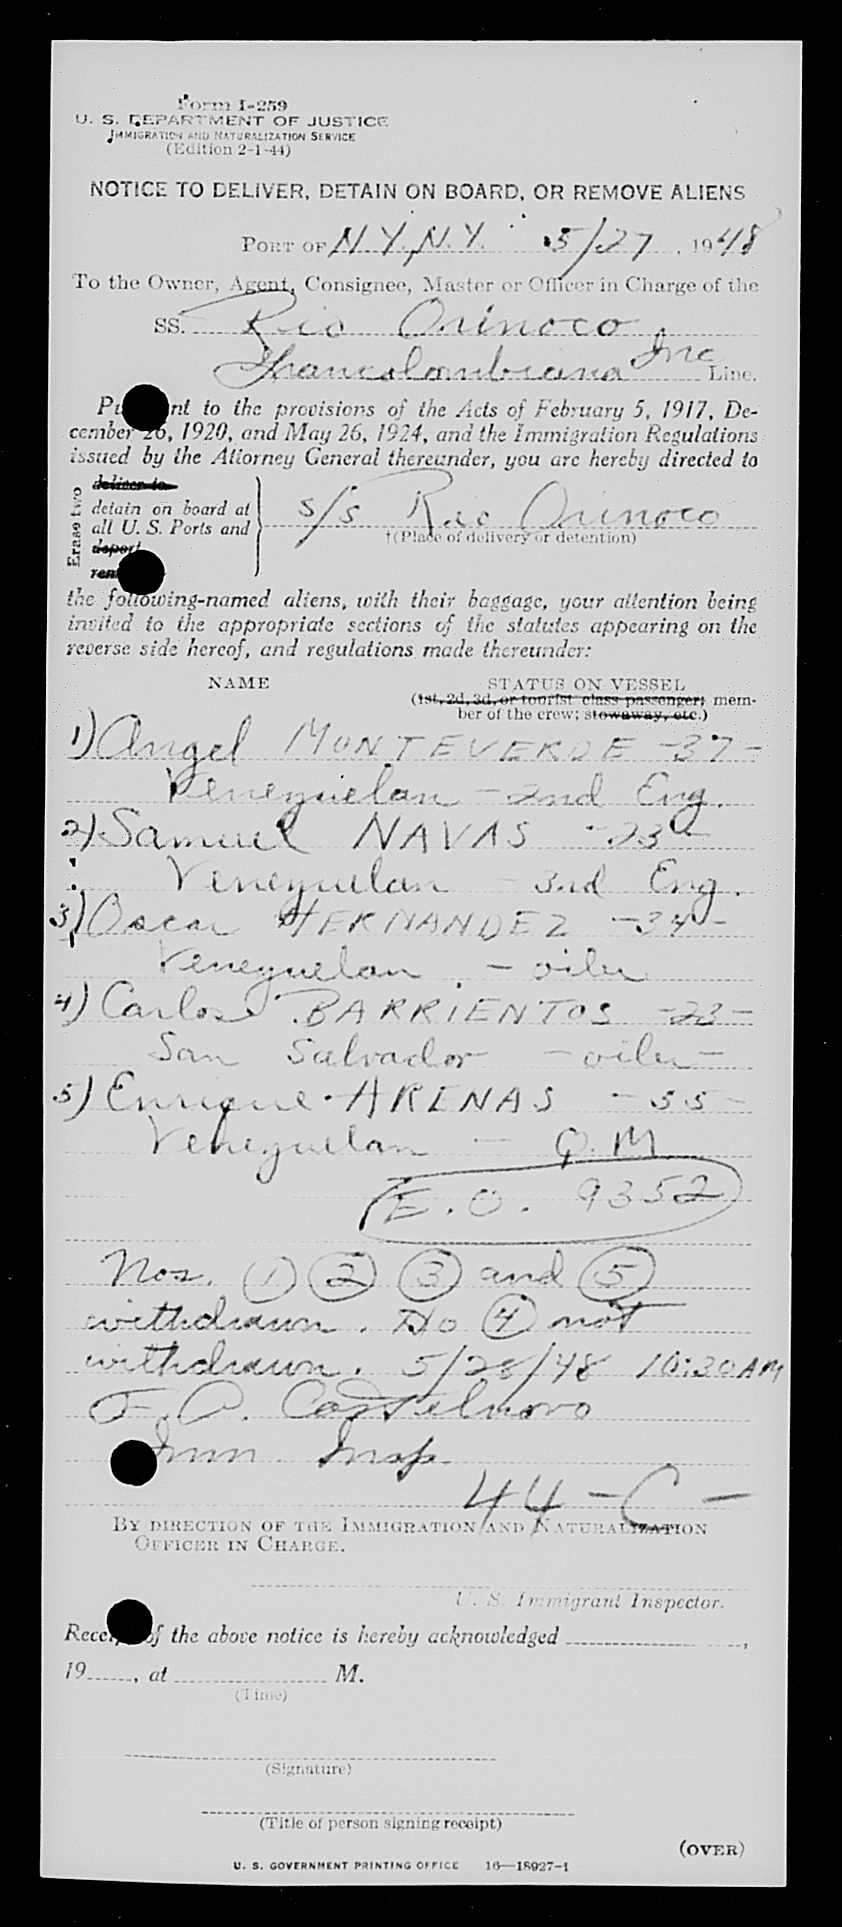 Form I-259
U. S. DEPARTMENT OF JUSTICE
IMMIGRATION AND NATURALIZATION SERVICE
(Edition 2-1-44)
NOTICE TO DELIVER, DETAIN ON BOARD, OR REMOVE ALIENS
PORT OF N.Y., N.Y. 5/27, 1948
To the Owner, Agent, Consignee, Master or Officer in Charge of the
SS. Rio Orinoco
Grancolombiana Inc Line.
Pu nt to the provisions of the Acts of February 5, 1917, De-
cember 26, 1920, and May 26, 1924, and the Immigration Regulations
issued by the Attorney General thereunder, you are hereby directed to
Erase two
deliver to
detain on board at
all U. S. Ports and
deport
rem
s/s Rio Orinoco
†(Place of delivery or detention)
the following-named aliens, with their baggage, your attention being
invited to the appropriate sections of the statutes appearing on the
reverse side hereof, and regulations made thereunder:
NAME STATUS ON VESSEL
(1st, 2d, 3d, or tourist class passenger; mem-
ber of the crew; stowaway, etc.)
1) Angel MONTEVERDE -37-
Venezuelan - 2nd Eng.
2) Samuel NAVAS -23-
Venezuelan - 3rd Eng.
3) Oscar HERNANDEZ -34-
Venezuelan - oiler
4) Carlos BARRIENTOS -23-
San Salvador - oiler-
5) Enrique ARENAS -35-
Venezuelan - Q.M
E.O. 9352
Nos. 1 2 3 and 5
withdrawn. No 4 not
withdrawn. 5/28/48 10:30 AM
F. A. Castelnovo
Imm Insp.
44-C-
BY DIRECTION OF THE IMMIGRATION AND NATURALIZATION
OFFICER IN CHARGE.
U. S. Immigrant Inspector.
Recei of the above notice is hereby acknowledged ,
19 , at M.
(Time)
(Signature)
(Title of person signing receipt)
(OVER)
U. S. GOVERNMENT PRINTING OFFICE 16—18927-1